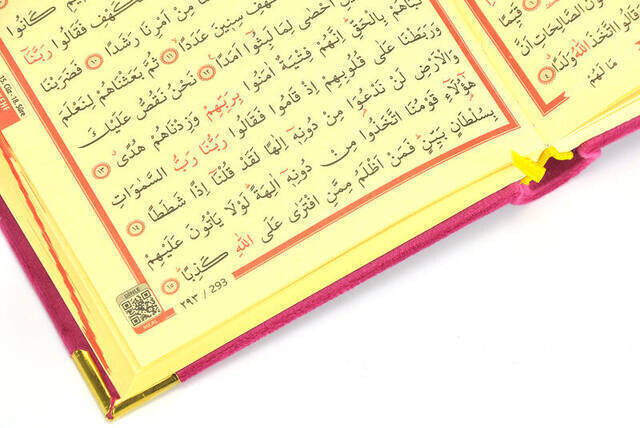 كَانُوا
الْكَهْفِ فَقَالُوا رَبَّنَٓا
مِنْ اَمْرِنَا رَشَدًا ﴿١٠﴾ فَضَرَبْنَا
كَهْفِ سِن۪ينَ عَدَدًا ﴿١١﴾ ثُمَّ بَعَثْنَاهُمْ لِنَعْلَمَ
اَحْصٰى لِمَا لَبِثُٓوا اَمَدًا ﴿١٢﴾ نَحْنُ نَقُصُّ عَلَيْكَ
نَبَاَهُمْ بِالْحَقِّ اِنَّهُمْ فِتْيَةٌ اٰمَنُوا بِرَبِّهِمْ وَزِدْنَاهُمْ هُدًى ﴿١٣﴾
وَرَبَطْنَا عَلٰى قُلُوبِهِمْ اِذْ قَامُوا فَقَالُوا رَبُّنَا رَبُّ السَّمٰوَاتِ
وَالْاَرْضِ لَنْ نَدْعُوَا مِنْ دُونِه۪ٓ اِلٰهًا لَقَدْ قُلْنَٓا اِذًا شَطَطًا ﴿١٤﴾
هٰٓؤُلَٓاءِ قَوْمُنَا اتَّخَذُوا مِنْ دُونِه۪ٓ اٰلِهَةً لَوْلَا يَأْتُونَ عَلَيْهِمْ
بِسُلْطَانٍ بَيِّنٍ فَمَنْ اَظْلَمُ مِمَّنِ افْتَرٰى عَلَى اللّٰهِ كَذِبًا ﴿١٥﴾
٢٩٣ / 293
DİNLE
MEAL
15.Cüz-18.Sûre
قَيِّمًا
الصَّالِحَاتِ اَنَّ
قَالُوا اتَّخَذَ اللّٰهُ وَلَدًا ﴿٤﴾
مَا لَهُمْ